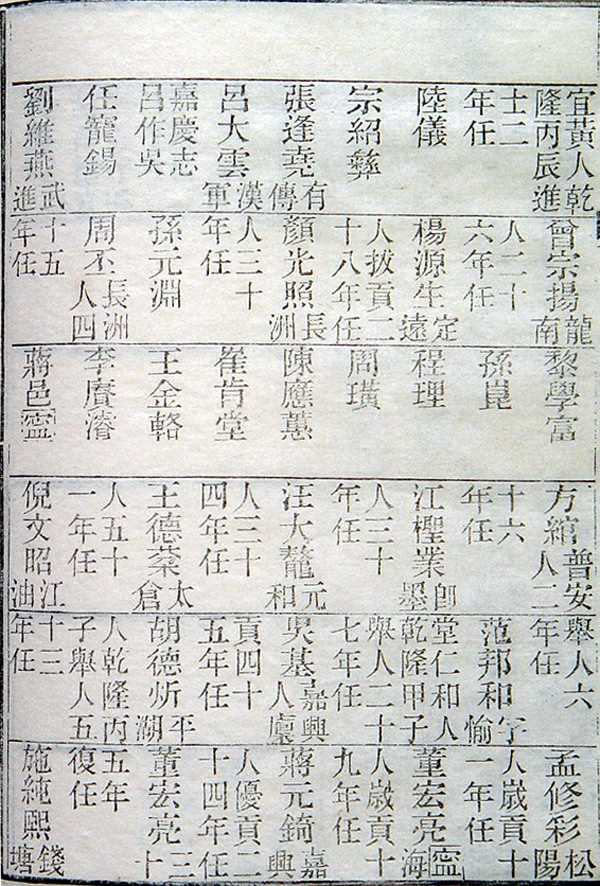 宜黃人乾
隆丙辰進
士二
年任
陸儀
宗紹彝
張逢堯有傳
呂大雲漢軍
嘉慶志
呂作吳
任寵錫
劉維燕武進
曾宗揚龍南
人二十
六年任
楊源生定遠
人拔貢二
十八年任
顏光照長洲
人三十
年任
孫元淵
周丕長洲人四
十五
年任
黎學富
孫崑
程理
周璜
陳應蕙
崔肯堂
王金輅
李賡濬
蔣邑寍
方綰普安人二
十六
年任
江檉業卽墨
人三十
年任
汪大鰲元和
人三十
四年任
王德棻太倉
人五十
一年任
倪文昭江油
舉人六
年任
范邦和字愉
堂仁和人
乾隆甲子
舉人二十
七年任
吳基嘉興人廩
貢四十
五年任
胡德炘平湖
人乾隆丙
子舉人五
十三
年任
孟修彩松陽
人歲貢十
一年任
董宏亮寍海
人歲貢十
九年任
蔣元錡嘉興
人優貢二
十四年任
董宏亮三十
五年
復任
施純熙錢塘